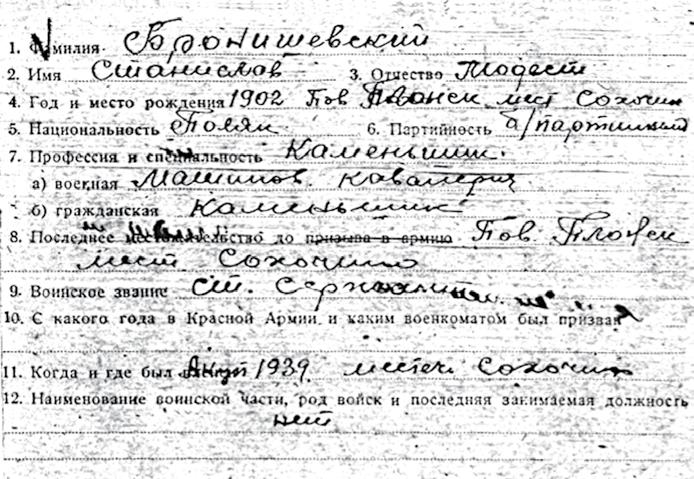 1. Фамилия Бронишевский
2. Имя Станислов 3. Отчество Модест
4. Год и место рождения 1902 Пов Плонск мест Сохочин
5. Национальность Поляк 6. Партийность б/партийный
7. Профессия и специальность Каменьшик.
а) военная кавалерия
б) гражданская каменьшик
8. Последнее до призыва в армию Пов. Плонск
мест Сохочино
9. Воинское звание ст.
10. С какого года в Красной Армии и каким военкоматом был призван
11. Когда и где был 1939 местеч Сохочин
12. Наименование воинской части, род войск и последняя занимаемая должность
нет